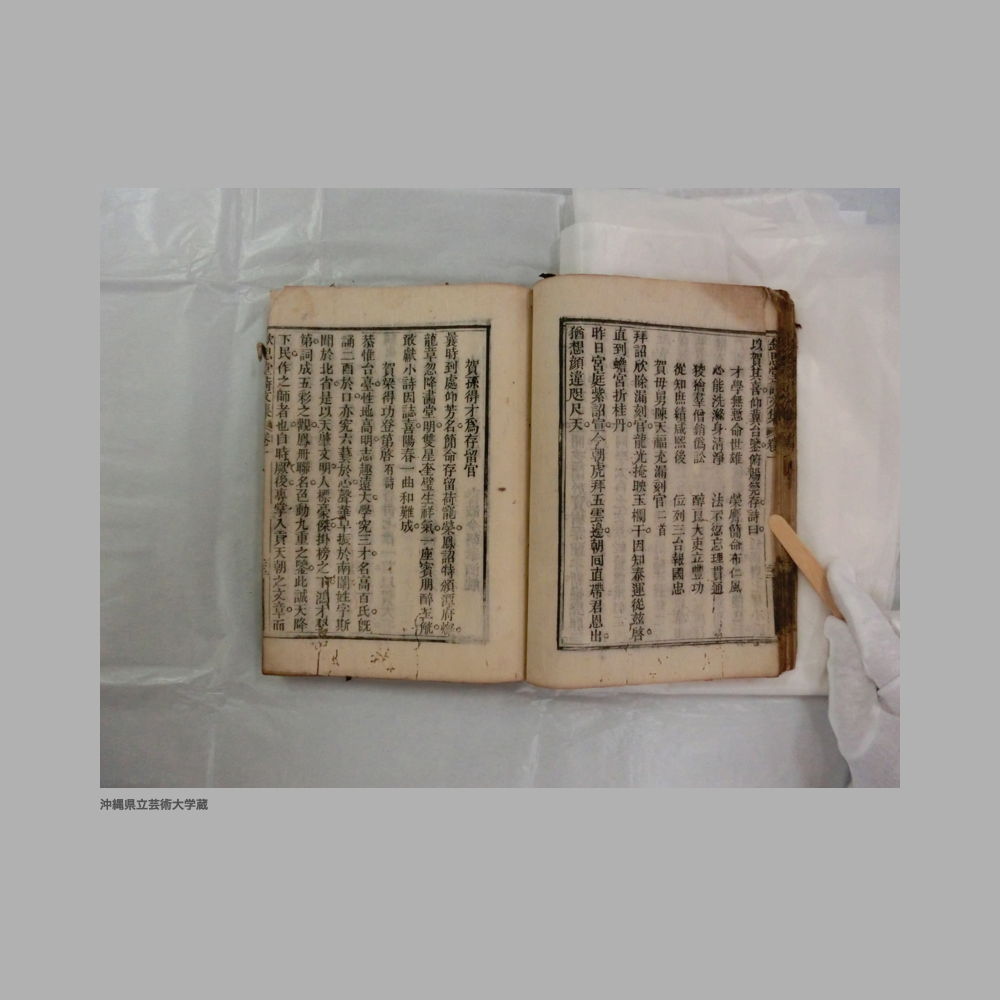 以賀其喜仰冀台鑒俯賜覽存詩曰
才學無慙命世雄 榮膺簡命布仁風
必能洗濯身清淨 法不忘理貫通
稜稜羣僧銷僞訟 醇良大吏立豐功
從知庶績咸熙後 位列三台報國忠
賀毋舅陳天福充漏刻官二首
拜詔欣除漏刻官龍光掩映玉欄干因知泰運從茲啓
直到蟾宮折桂丹
昨日宮庭紫詔宣今朝虎拜五雲邊朝回直帶君恩出
猶想顔違咫尺天
賀孫得才爲存留官
曩時到處仰芳名簡命存留荷寵榮鳳詔特頒潭府
龍章忽降畵堂明雙星奎璧生祥氣一座賓朋醉
敢獻小詩因誌喜陽春一曲和難成
賀梁得功登第啓有詩
恭惟台臺性地高明志趣遠大學究三才名高百氏旣
誦二酉於口亦究六藝於心聲華早振於南國姓字斯
聞於北省是以天肇文明人標豪傑掛榜之下鴻才
第詞成五彩之觀鳳冊聯名召動九重之鑒此誠天降
下民作之師者也自時厥後專掌入貢天朝之文章而
沖縄県立芸術大学蔵